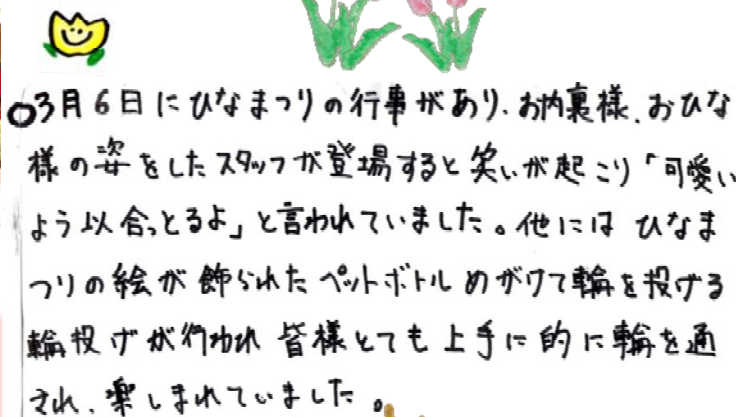 ○3月6日にひなまつりの行事があり、お内裏様、おひな
様の姿をしたスタッフが登場すると笑いが起こり「可愛い
よう以合っとるよ」と言われていました。他には ひなま
つりの絵が飾られたペットボトルめがけて輪を投げる
輪投げが行われ 皆様とても上手に的に輪を通
され、楽しまれていました。